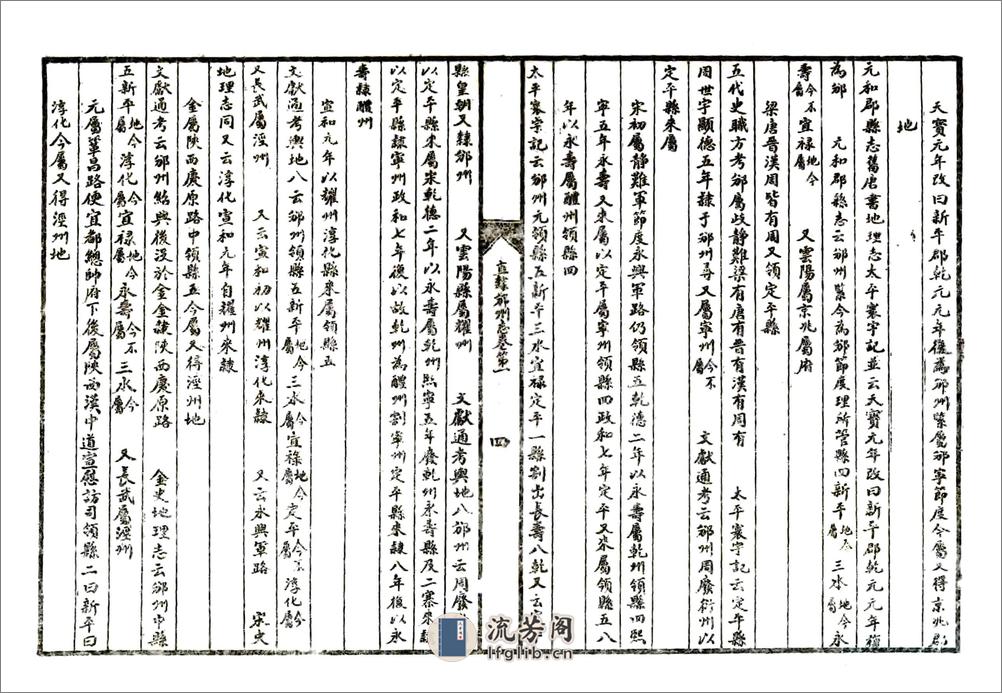 天寶元年改曰新平郡乾元元年復為邠州縈屬邠寧節度今屬又得京兆郡
地
元和郡縣志舊唐書地理志太平寰宇記並云天寶元年改曰新平郡乾元元年復
為邠 元和郡縣志云邠州縈今為邠節度理所管縣四新平地今屬 三水地今屬 永
壽今不屬 宜祿地今屬 又雲陽屬京兆屬府
梁唐晉漢周皆有周又領定平縣
五代史職方考邠屬歧靜難梁有唐有晉有漢有周有 太平寰宇記云定平縣
周世宗顯德五年隸于邠州尋又屬寧州今不屬 文獻通考云邠州周廢衍州以
定平縣來屬
宋初屬靜難軍節度永興軍路仍領縣五乾德二年以永壽屬乾州領縣四熙
寧五年永壽又來屬以定平屬寧州領縣四政和七年定平又來屬領縣五八
年以永壽屬醴州領縣四
太平寰宇記云邠州元領縣五新平三水宜祿定平一縣割出長壽入乾又云定
直隸邠州志卷第一
四
縣皇朝又隸邠州 又雲陽縣屬耀州 文獻通考輿地八邠州云周廢衍州
以定平縣來屬宋乾德二年以永壽屬乾州熙寧五年廢乾州永壽縣及二寨來隸
以定平縣隸寧州政和七年復以故乾州為醴州割寧州定平縣來隸八年復以永
壽隸醴州
宣和元年以耀州淳化縣來屬領縣五
文獻通考輿地八云邠州領縣五新平地今屬 三水今屬 宜祿地今屬 定平今不屬 淳化今屬
又長武屬涇州 又云宣和初以耀州淳化來隸 又云永興軍路 宋史
地理志同又云淳化宣和元年自耀州來隸
金屬陝西慶原路中領縣五今屬又得涇州地
文獻通考云邠州紹興後沒於金金隸陝西慶原路 金史地理志云邠州中縣
五新平地今屬 淳化今屬 宜祿地今屬 永壽今不屬 三水今屬 又長武屬涇州
元屬鞏昌路便宜都總帥府下後屬陝西漢中道宣慰訪司領縣二曰新平曰
淳化今屬又得涇州地
流芳阁
lfglib.cn